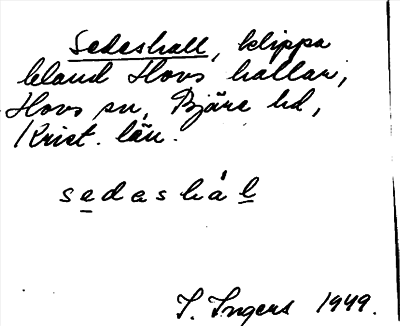 Sedeshall, klippa
bland Hovs hallar,
Hovs sn, Bjäre hd,
Krist. län.
sedashål
I. Ingers 1949.